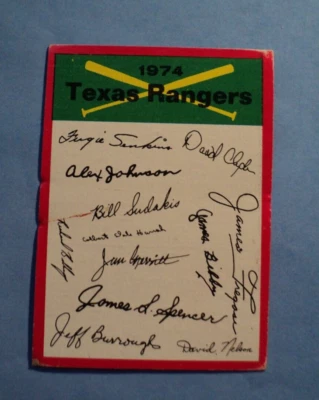 1974
Texas Rangers
Fergie Jenkins
David Clyde
Alex Johnson
Bill Sudakis
James Fregosi
James Bibby
Jim Merritt
James L. Spencer
Jeff Burroughs
David Nelson